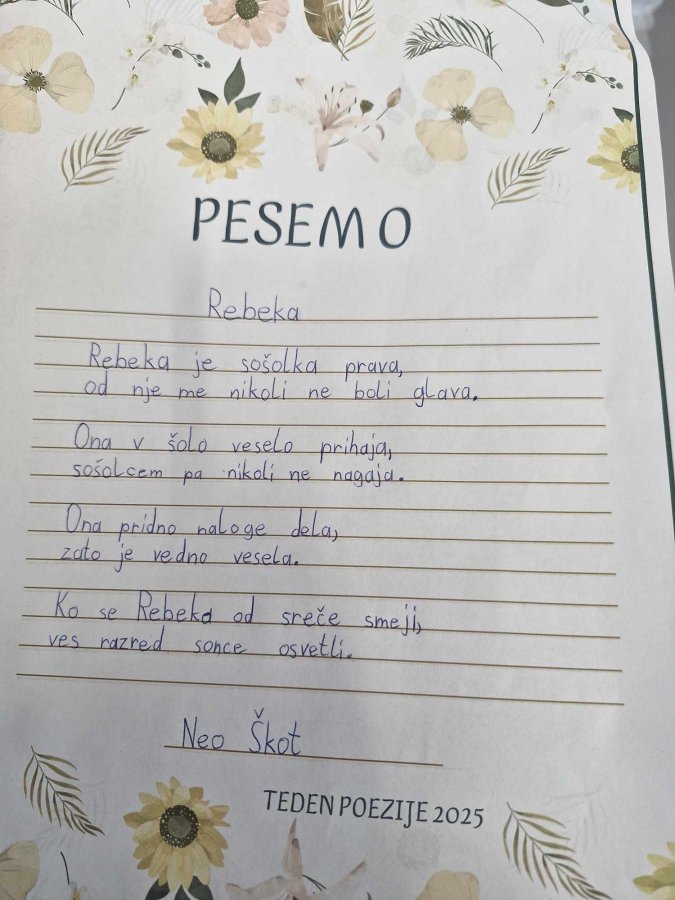 PESEMO
Rebeka
Rebeka je sošolka prava,
od nje me nikoli ne boli glava.
Ona v šolo veselo prihaja,
sošolcem pa nikoli ne nagaja.
Ona pridno naloge dela,
zato je vedno vesela.
Ko se Rebeka od sreče smeji,
ves razred sonce osvetli.
Neo Škot
TEDEN POEZIJE 2025